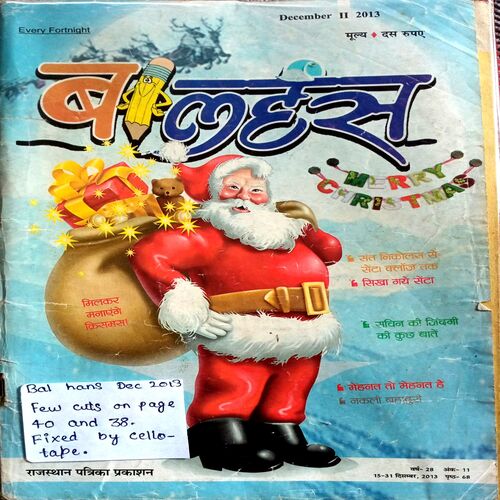 December II 2013
Every Fortnight
मूल्य ♦ दस रुपए
बालहंस
MERRY
CHRISTMAS
संत निकोलस से
सेंटा क्लॉज तक
सिखा गये सेंटा
मिलकर
मनाएंगे
क्रिसमस!
सचिन की जिंदगी
की कुछ बातें
मेहनत तो मेहनत है
नकली बहादुरी
Bal hans Dec 2013
Few cuts on page
40 and 38.
Fixed by cello-
tape.
राजस्थान पत्रिका प्रकाशन
वर्ष- 28 अंक- 11
15-31 दिसम्बर, 2013 पृष्ठ- 68